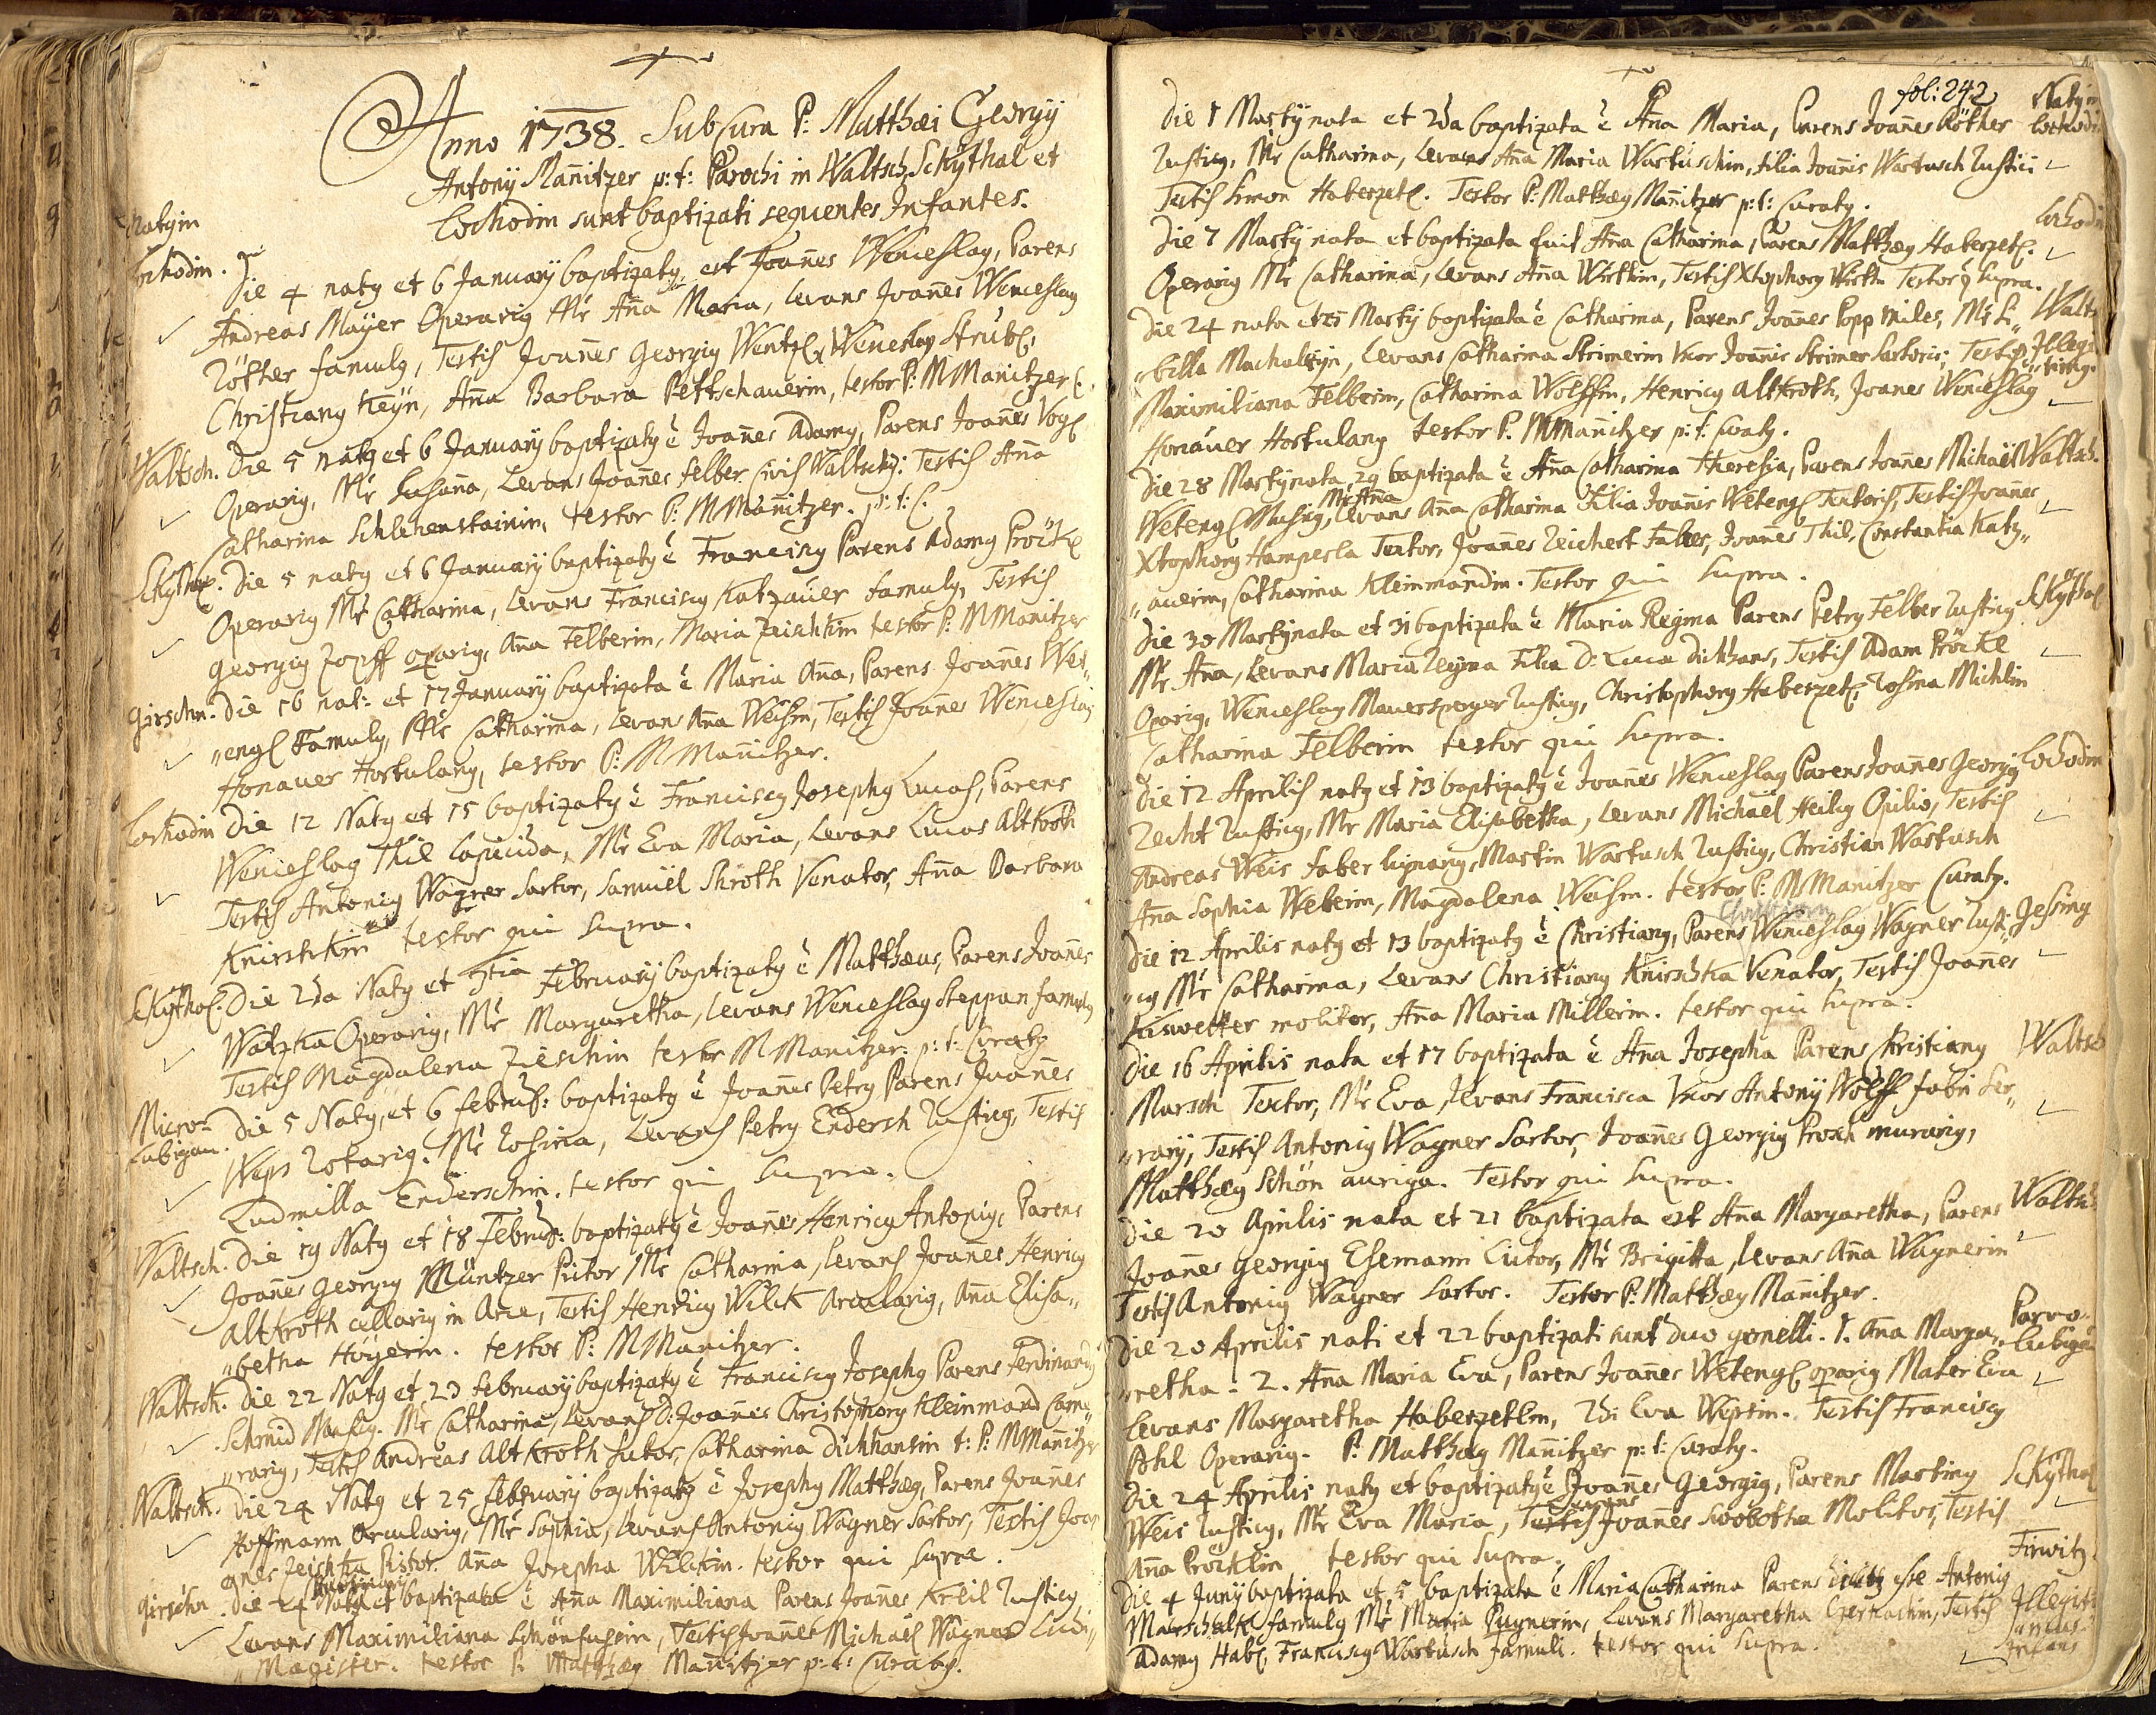 Anno 1738. Sub Cura P: Matthæi Georgÿ
Antonÿ Mañitzer p: t: Parochi in Waltsch, Schythal et
Lochodin sunt baptizati sequentes Infantes.
Natg in
Lochodin. Die 4 natg et 6 Januarÿ baptizatg est Joañes Wenceslag, Parens
Andreas Maÿer Operarig Mr̄ Aña Maria, Levans Joañes Wenceslag
Röther famulg, Testis Joañes Georgig Wentzl, Wenceslag Strubl,
Christiang Keÿn, Aña Barbara Pettschauerin, testor P: M Mañitzer C.
Waltsch. Die 5 natg et 6 Januarÿ baptizatg ē Joañes Adamg, Parens Joañes Vogl
Operarig, Mr̄ Susaña, Levans Joañes Felber Civis Waltsch: Testis Aña
Catharina Schlehenstainin, testor P: M Mañitzer. p: t: C.
Schythal. Die 5 natg et 6 Januarÿ baptizatg ē Franciscg Parens Adamg Pröckl
Operarig Mr̄ Catharina, Levans Franciscg Katzauer famulg, Testis
Georgig Zopff oparig, Aña Felberin, Maria Zeischkin testor P: M Manitzer
Girschn. Die 16 nat: et 17 Januarÿ baptizata ē Maria Aña, Parens Joañes Wet„
„engl Famulg, Mr̄ Catharina, Levans Aña Weisin, Testis Joañes Wenceslag
Honauer Hortulang, testor P: M Mañitzer.
Lochodin Die 12 Natg et 15 baptizatg ē Franciscg Josephg Lucas, Parens
Wenceslag Thil Lapicida, Mr̄ Eva Maria, Levans Lucas Altkroth
Testis Antonig Wagner Sartor, Samuel Shroth Venator, Aña Barbara
Knirschkin testor qui supra.
Schythal. Die 2da Natg et 3tia Februarÿ baptizatg ē Matthæus, Parens Joañes
Watzka Operarig, Mr̄ Margaretha, Levans Wenceslag Steppan famulg
Testis Magdalena Zieschin testor M Manitzer p: t: Curatg
Micro-
Lubigau. Die 5 Natg, et 6 februar: baptizatg ē Joañes Petrg Parens Joañes
Weps Rotarig. Mr̄ Rosina, Levans Petrg Endersch Rusticg, Testis
Ludmilla Enderschin. testor qui supra.
Waltsch. Die 19 Natg et 18 Februar: baptizatg ē Joañes Henricg Antonig, Parens
Joañes Georgig Müntzer Pictor Mr̄ Catharina, Levans Joañes Henricg
Altkroth cellarig in Arce, Testis Henricg Wilck Arcularig, Aña Elisa„
„betha Höÿerin. testor P: M Manitzer.
Waltsch. Die 22 Natg et 23 februarÿ baptizatg ē Franciscg Josephg Parens Ferdinandg
Schmid Musicg. Mr̄ Catharina, Levans D: Joañes Christophorg Kleinmand Came„
„rarig, Testis Andreas Altkroth Sutor, Catharina Dickhansin t: P: M Mañitzer
Waltsch. Die 24 Natg et 25 februarÿ baptizatg ē Josephg Matthæg, Parens Joañes
Hoffmann Arcularig, Mr̄ Sophia, Levans Antonig Wagner Sartor, Testis Jo„
„anes Zeischka Pistor. Aña Josepha Wilckin. testor qui supra.
Girschn. Die 24 Nata et baptizata ē Aña Maximiliana Parens Joañes Kreil Rusticg,
Levans Maximiliana Schönfusin, Testis Joañes Michael Wagner Ludi„
„Magister. testor P: Matthæg Mañitzer p: t: Curatg.
fol: 242
Die 1 Martÿ nata et 2da baptizata ē Aña Maria, Parens Joañes Röther Natg in Lochodin
Rusticg, Mr̄ Catharina, Levans Aña Maria Wartuschin, filia Joañis Wartusch Rustici
Testis Simon Haberzetl. Testor P: Matthæg Mañitzer p: t: Curatg.
Die 7 Martÿ nata et baptizata fuit Aña Catharina, Parens Matthæg Haberzetl. Lochodin
Operarig Mr̄ Catharina, Levans Aña Wirthin, Testis Xtophorg Wirth Testor q supra.
Die 24 nata et 25 Martÿ baptizata ē Catharina, Parens Joañes Popp miles, Mr̄ Si„ Waltsch
„billa Machalkin, Levans Catharina Strimerin Uxor Joañis Strimer Sartoris; Testes Illegi
Maximiliana Felberin, Catharina Wolffin, Henricg Altkroth, Joanes Wenceslag „timg.
Honauer Hortulang testor P. M Mañitzer p: t: Curatg.
Die 28 Martÿ nata, 29 baptizata ē Aña Catharina Theresia, Parens Joañes Michael Waltsch.
Wetengl Musicg, Mr̄ Aña Levans Aña Catharina Filia Joañis Wetengl Textoris, Testis Joañes
Xtophorg Hamperla Textor, Joañes Reichert Faber, Joañes Thil, Constantia Katz„
„auerin, Catharina Kleinmandin. Testor qui supra.
Die 30 Martÿ nata et 31 baptizata ē Maria Regina Parens Petrg Felber Rusticg Schythal
Mr̄ Aña, Levans Maria Regina Filia D: Lucæ Dickhans, Testis Adam Pröckl
Oparig, Wenceslag Mauersperger Rusticg, Christophorg Haberzetl, Rosina Michlin
Catharina Felberin testor qui supra.
Die 12 Aprilis natg et 13 baptizatg ē Joañes Wenceslag Parens Joañes Georgig Lochodin
Zecht Rusticg, Mr̄ Maria Elisabetha, Levans Michael Heilig Opilio, Testis
Andreas Weis faber lignarg, Martin Wartusch Rusticg, Christian Wartusch
Aña Sophia Weberin, Magdalena Weisin. testor P: M Manitzer Curatg.
Die 12 Aprilis natg et 13 baptizatg ē Christiang, Parens Wenceslag Wagner Rusti„ Jessing
„cg Mr̄ Catharina, Levans Christiang Knirschka Venator, Testis Joañes
Liswetter molitor, Aña Maria Millerin. testor qui supra.
Die 16 Aprilis nata et 17 baptizata ē Aña Josepha Parens Christiang Waltsch
Marsch Textor, Mr̄ Eva, Levans Francisca Uxor Antonÿ Wolff fabri fer„
„rarÿ, Testis Antonig Wagner Sartor, Joañes Georgig Proxh murarig,
Matthæg Schön auriga. Testor qui supra.
Die 20 Aprilis nata et 21 baptizata est Aña Margaretha, Parens Waltsch.
Joañes Georgig Esemann Sutor, Mr̄ Brigitta, Levans Aña Wagnerin
Testis Antonig Wagner Sartor. Testor P: Matthæg Mañitzer.
Die 20 Aprilis nati et 22 baptizati sunt duo gemelli. 1. Aña Marga„ Parvo-
„retha - 2. Aña Maria Eva, Parens Joañes Wetengl oparig Mater Eva Lubigau
Levans Margaretha Haberzetlin, 2da Eva Wepsin. Testis Franciscg
Pohl Operarig. P: Matthæg Mañitzer p: t: Curatg.
Die 24 Aprilis natg et baptizatg ē Joañes Georgig, Parens Marting Schythal
Weis Rusticg, Mr̄ Eva Maria, Levans Joañes Swoboda Molitor, Testis
Aña Pröcklin testor qui supra.
Die 4 Junÿ baptizata et 5 baptizata ē Maria Catharina Parens dicitg esse Antonig Tirwitz.
Marschalk famulg Mr̄ Maria Pugnerin, Levans Margaretha Czernachin, Testis Illegiti
Adamg Habl, Franciscg Wartusch famuli. testor qui supra. „mus Infans